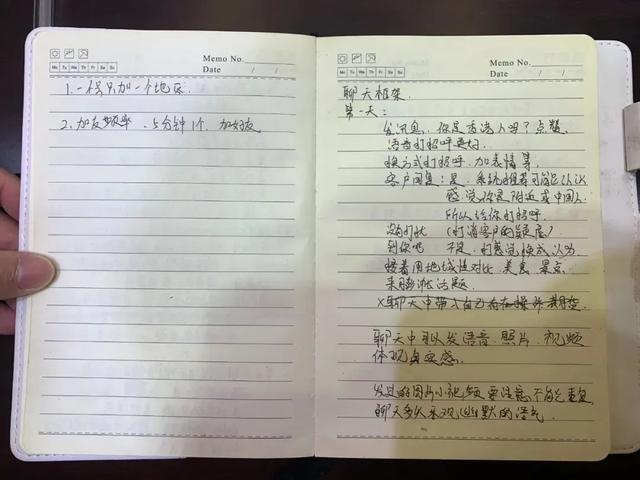 Memo No.
Mo Tu We Th Fr Sa Su
Date / /
1. 一号只加一个地区.
2. 加友频率. 5分钟1个. 加好友
Memo No.
Mo Tu We Th Fr Sa Su
Date / /
聊天框架.
第一天:
发讯息, 你是香港人吗? 点赞.
语音打招呼更好.
换方式打招呼. 加表情等.
客户回复: 是. 系统推荐可能认识
感觉你是附近或中国人.
所以给你打招呼.
(打消客户的疑虑)
到你吧 不是. 打感觉换成以为.
接着用地域性对比. 美食. 景点.
来膨派话题.
X聊天中带入自己
聊天中可以发语音. 照片. 视频
体现真实感.
发过的图片小视频要注意, 不能重复
聊天多以乐观, 幽默的语气.